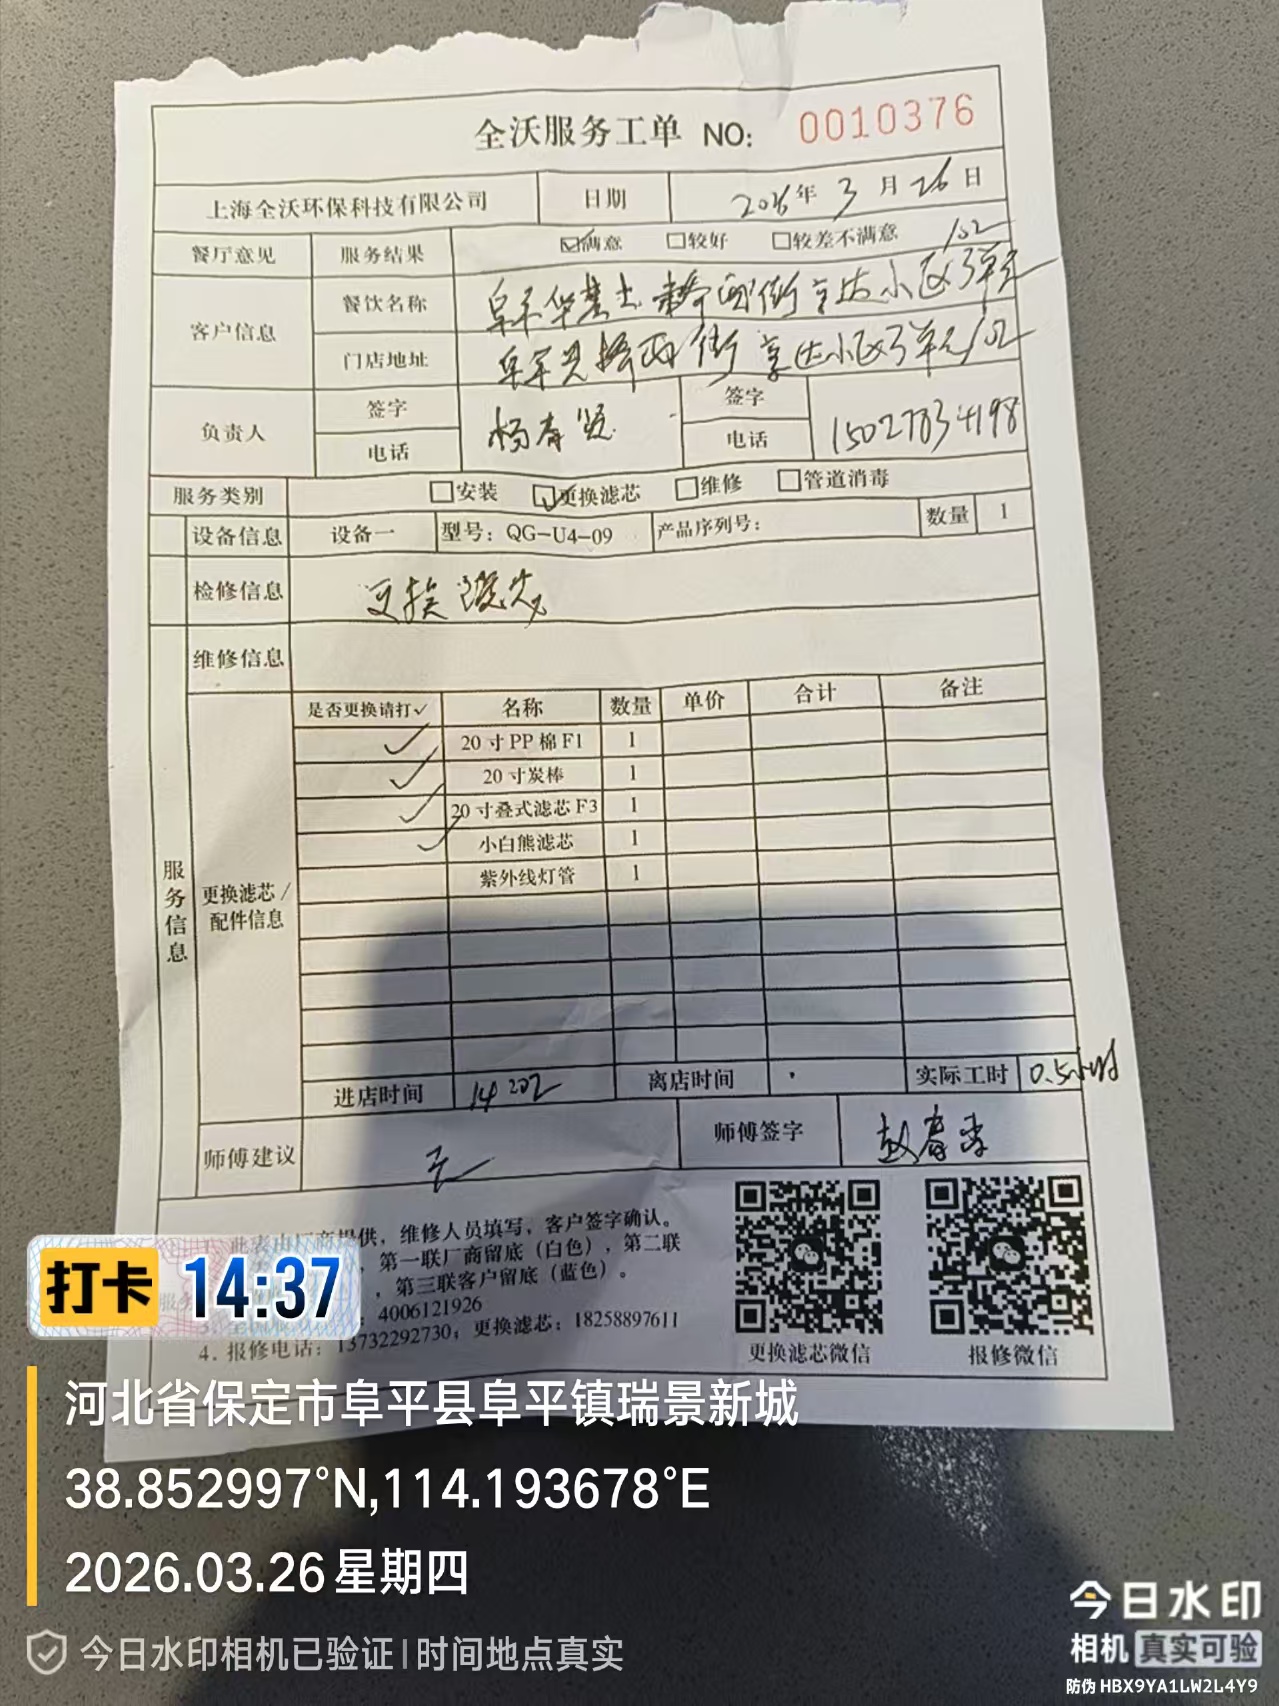 全沃服务工单 NO: 0010376
上海全沃环保科技有限公司 日期 2026年3月26日
餐厅意见 服务结果 ☑满意 □较好 □较差不满意
客户信息 餐饮名称 阜平华莱士 西街 小区3单元102
门店地址 阜平县 西街 小区3单元102
负责人 签字 杨春 签字
电话 电话 15027834198
服务类别 □安装 ☑更换滤芯 □维修 □管道消毒
设备信息 设备一 型号：QG-U4-09 产品序列号： 数量 1
检修信息 更换滤芯
维修信息
服务信息
更换滤芯/配件信息
是否更换请打✓ 名称 数量 单价 合计 备注
✓ 20寸PP棉F1 1
✓ 20寸炭棒 1
✓ 20寸叠式滤芯F3 1
✓ 小白熊滤芯 1
紫外线灯管 1
进店时间 14 离店时间 实际工时 0.5小时
师傅建议 无 师傅签字 赵春
此表由厂商提供，维修人员填写，客户签字确认。
第一联厂商留底（白色），第二联
，第三联客户留底（蓝色）。
4006121926
4. 报修电话：13732292730；更换滤芯：18258897611
更换滤芯微信 报修微信
打卡 14:37
河北省保定市阜平县阜平镇瑞景新城
38.852997°N,114.193678°E
2026.03.26 星期四
今日水印相机已验证|时间地点真实
今日水印
相机 真实可验
防伪 HBX9YA1LW2L4Y9